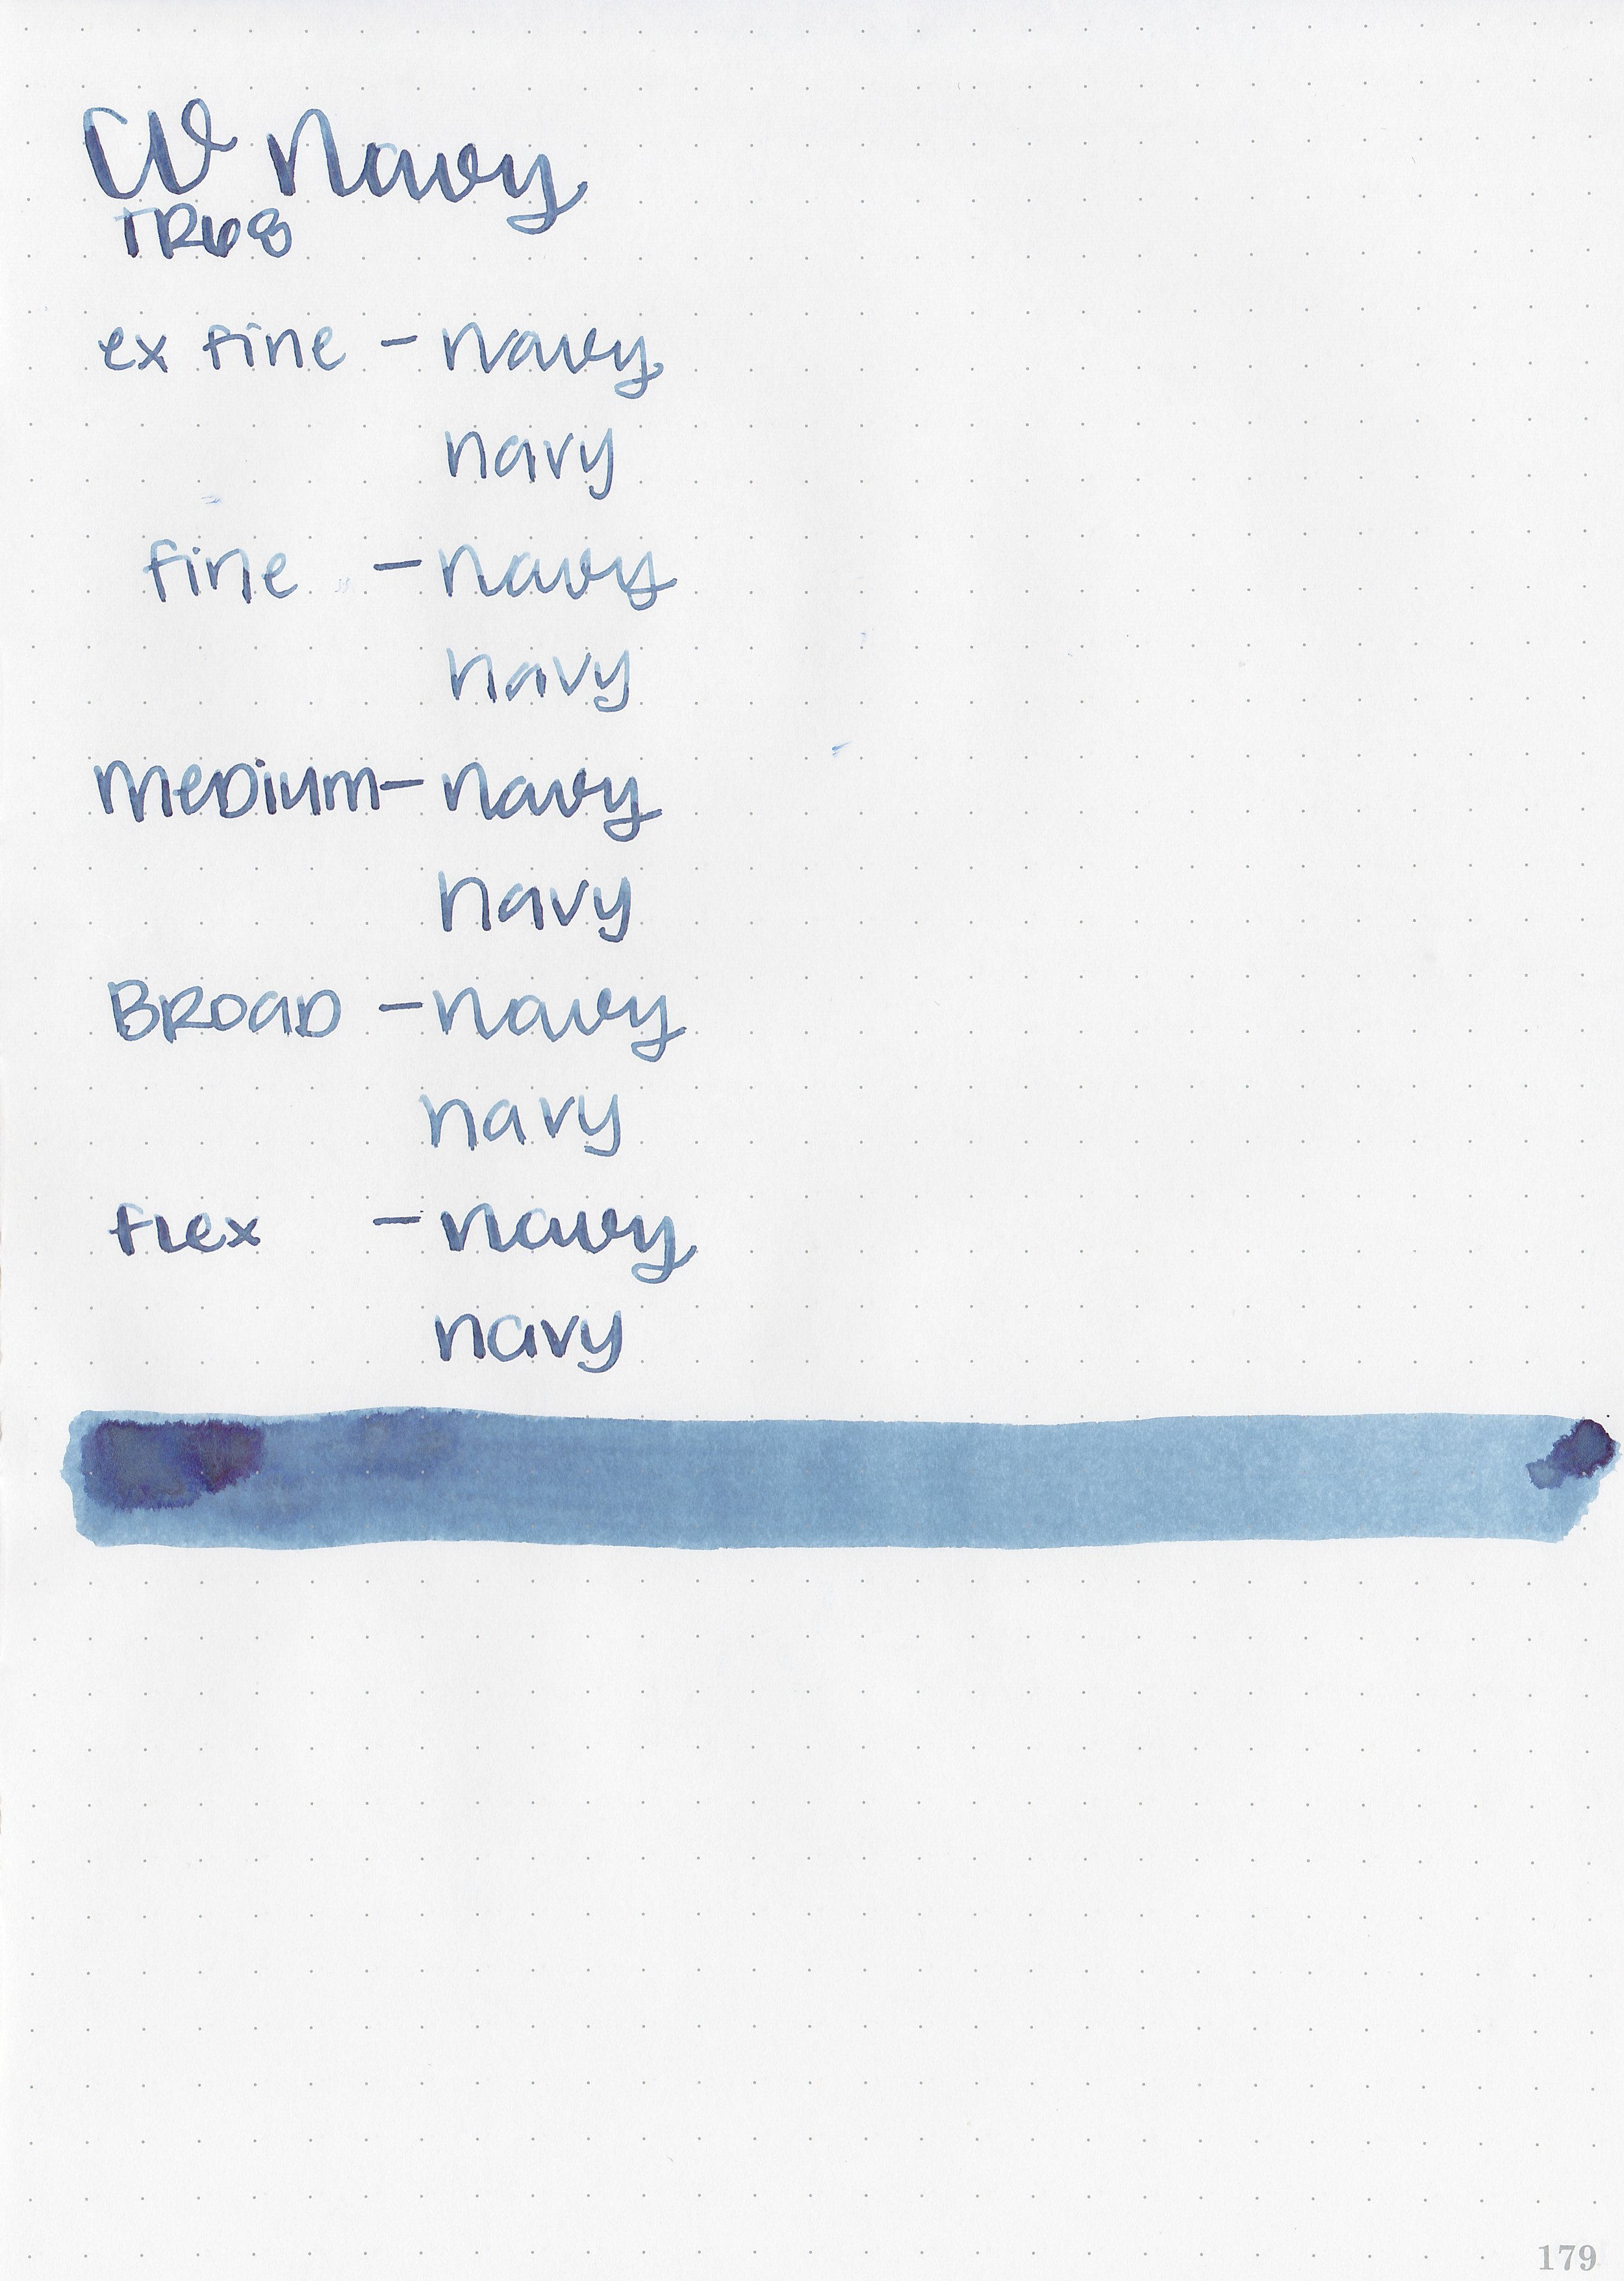 CV Navy
TR68
ex fine - navy
navy
fine - navy
navy
medium - navy
navy
Broad - navy
navy
flex - navy
navy
179